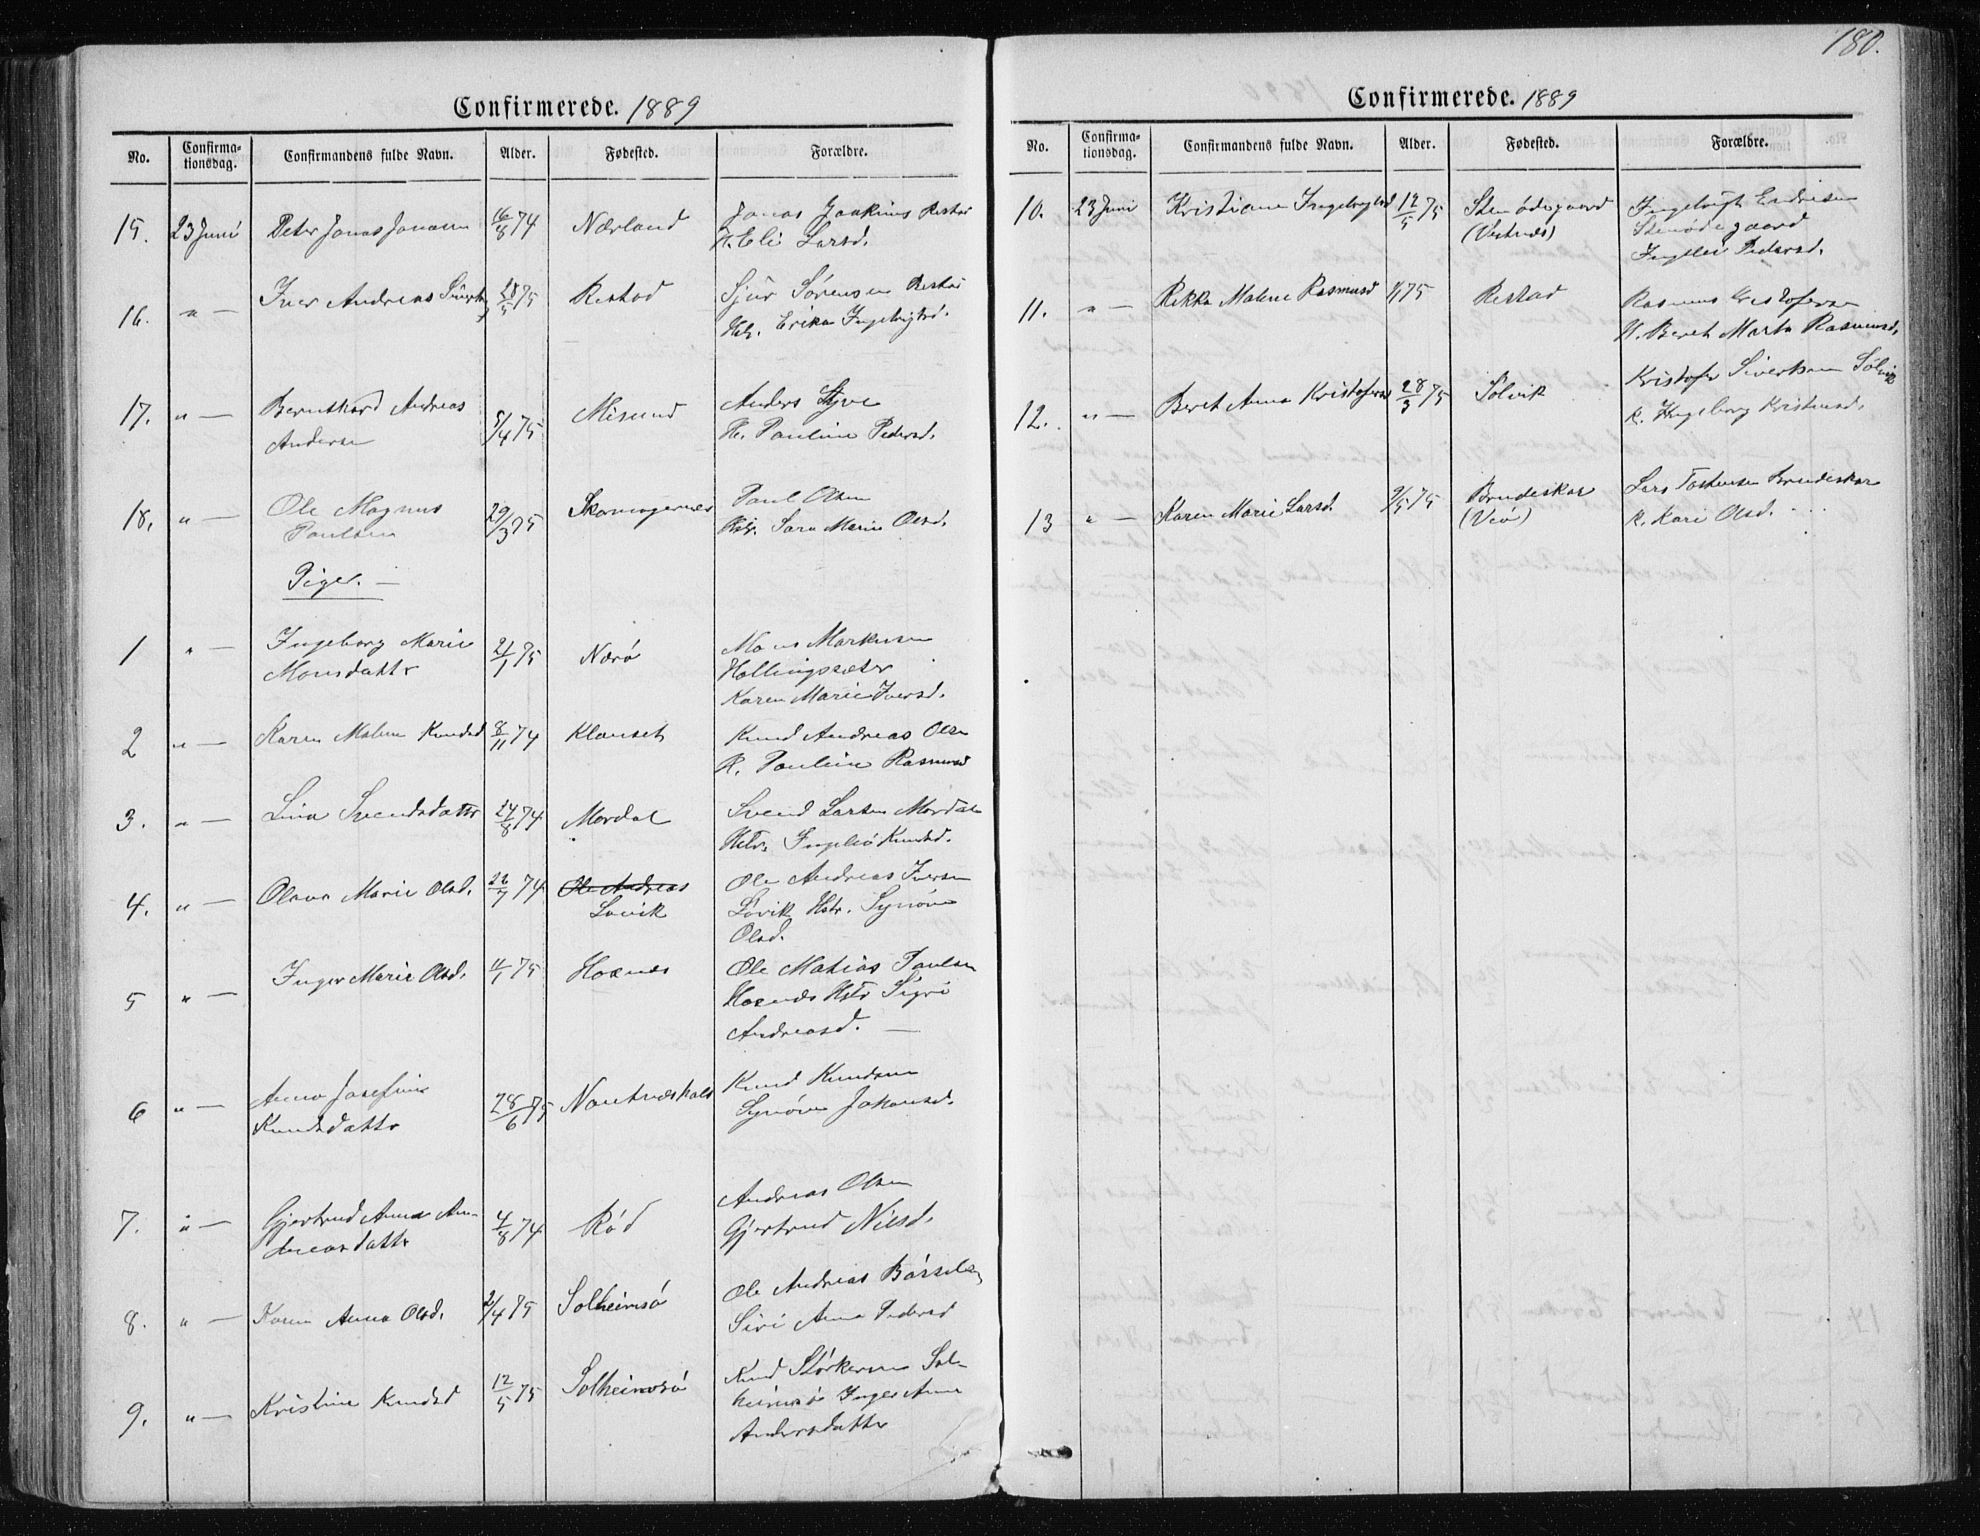 180.
Confirmerede. 1889
No. Confirma-tionsdag. Confirmandens fulde Navn. Alder. Fødested. Forældre.
15. 23 Juni Peter Jonas Jonasen 16/8 74 Nærland Jonas Joakims Restad
H. Eli Larsd.
16. " — Iver Andreas 5 75 Restad Sjur Sørensen Restad
Hst. Erika Ingebrigtsd.
17. " — Bernthard Andreas 5/4 75 Misund Anders Styve
Andersen H. Pauline Pedersd.
18. " — Ole Magnus 29/3 75 Paul Olsen
Paulsen Hst. Sara Marie Olsd.
Piger. —
1 " — Ingeborg Marie 21/1 75 Nærø Mons Markusen
Monsdattr Hollingsæter
Karen Marie Iversd.
2 " — Karen Malene Knudsd 8/11 74 Klauset Knud Andreas Olsen
K. Pauline Rasmusd
3. " — Lina Svendsdattr 24/8 74 Mordal Svend Larsen Mordal
Hstr. Knudsd.
4. " — Olava Marie Olsd. 22/7 74 Ole Andreas Ole Andreas Iversen
Løvik Løvik Hstr. Synøve
Olsd.
5 " — Inger Marie Olsd. 4/1 75 Hoxnes Ole Mathias Paulsen
Hoxnes Hstr Sigri
Andreasd. —
6 " — Anna Josefine 28/6 75 Nautneshals Knud Knudsen
Knudsdattr Synøve Johansd.
7. " — Gjertrud Anna An- 4/8 74 Rød Andreas Olsen
dreasdattr Gjertrud Nilsd.
8. " — Karen Anna Olsd. 2/4 75 Solheimsø Ole Andreas
Siri Anna Pedersd
9. " — Kristine Knudsd 12/5 75 Solheimsø Knud Størkersen Sol-
heimsø Inger Anne
Andersdattr
Confirmerede. 1889
No. Confirma-tionsdag. Confirmandens fulde Navn. Alder. Fødested. Forældre.
10. 23 Juni Kristiane Ingebrigtsd 12/5 75 Stenødegaard Ingebrigt Endresen
(Vestnæs) Stenødegaard
Pedersd.
11. " — Rikka Malene Rasmusd 1/1 75 Restad Rasmus Kristofersen
H. Beret Marta Rasmusd.
12. " — Beret Anna Kristofersd 28/3 75 Sølvik Kristofer Sivertsen Sølvik
K. Ingeborg Kristensd.
13 " — Karen Marie Larsd. 9/5 75 Brudeskar Lars Tostensen Brudeskar
(Veø) K. Kari Olsd.